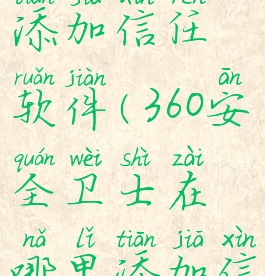 tiān jiā xìn rèn
添加信任
ruǎn jiàn ān
软件(360安
quán wèi shì zài
全卫士在
nǎ lǐ tiān jiā xìn
哪里添加信